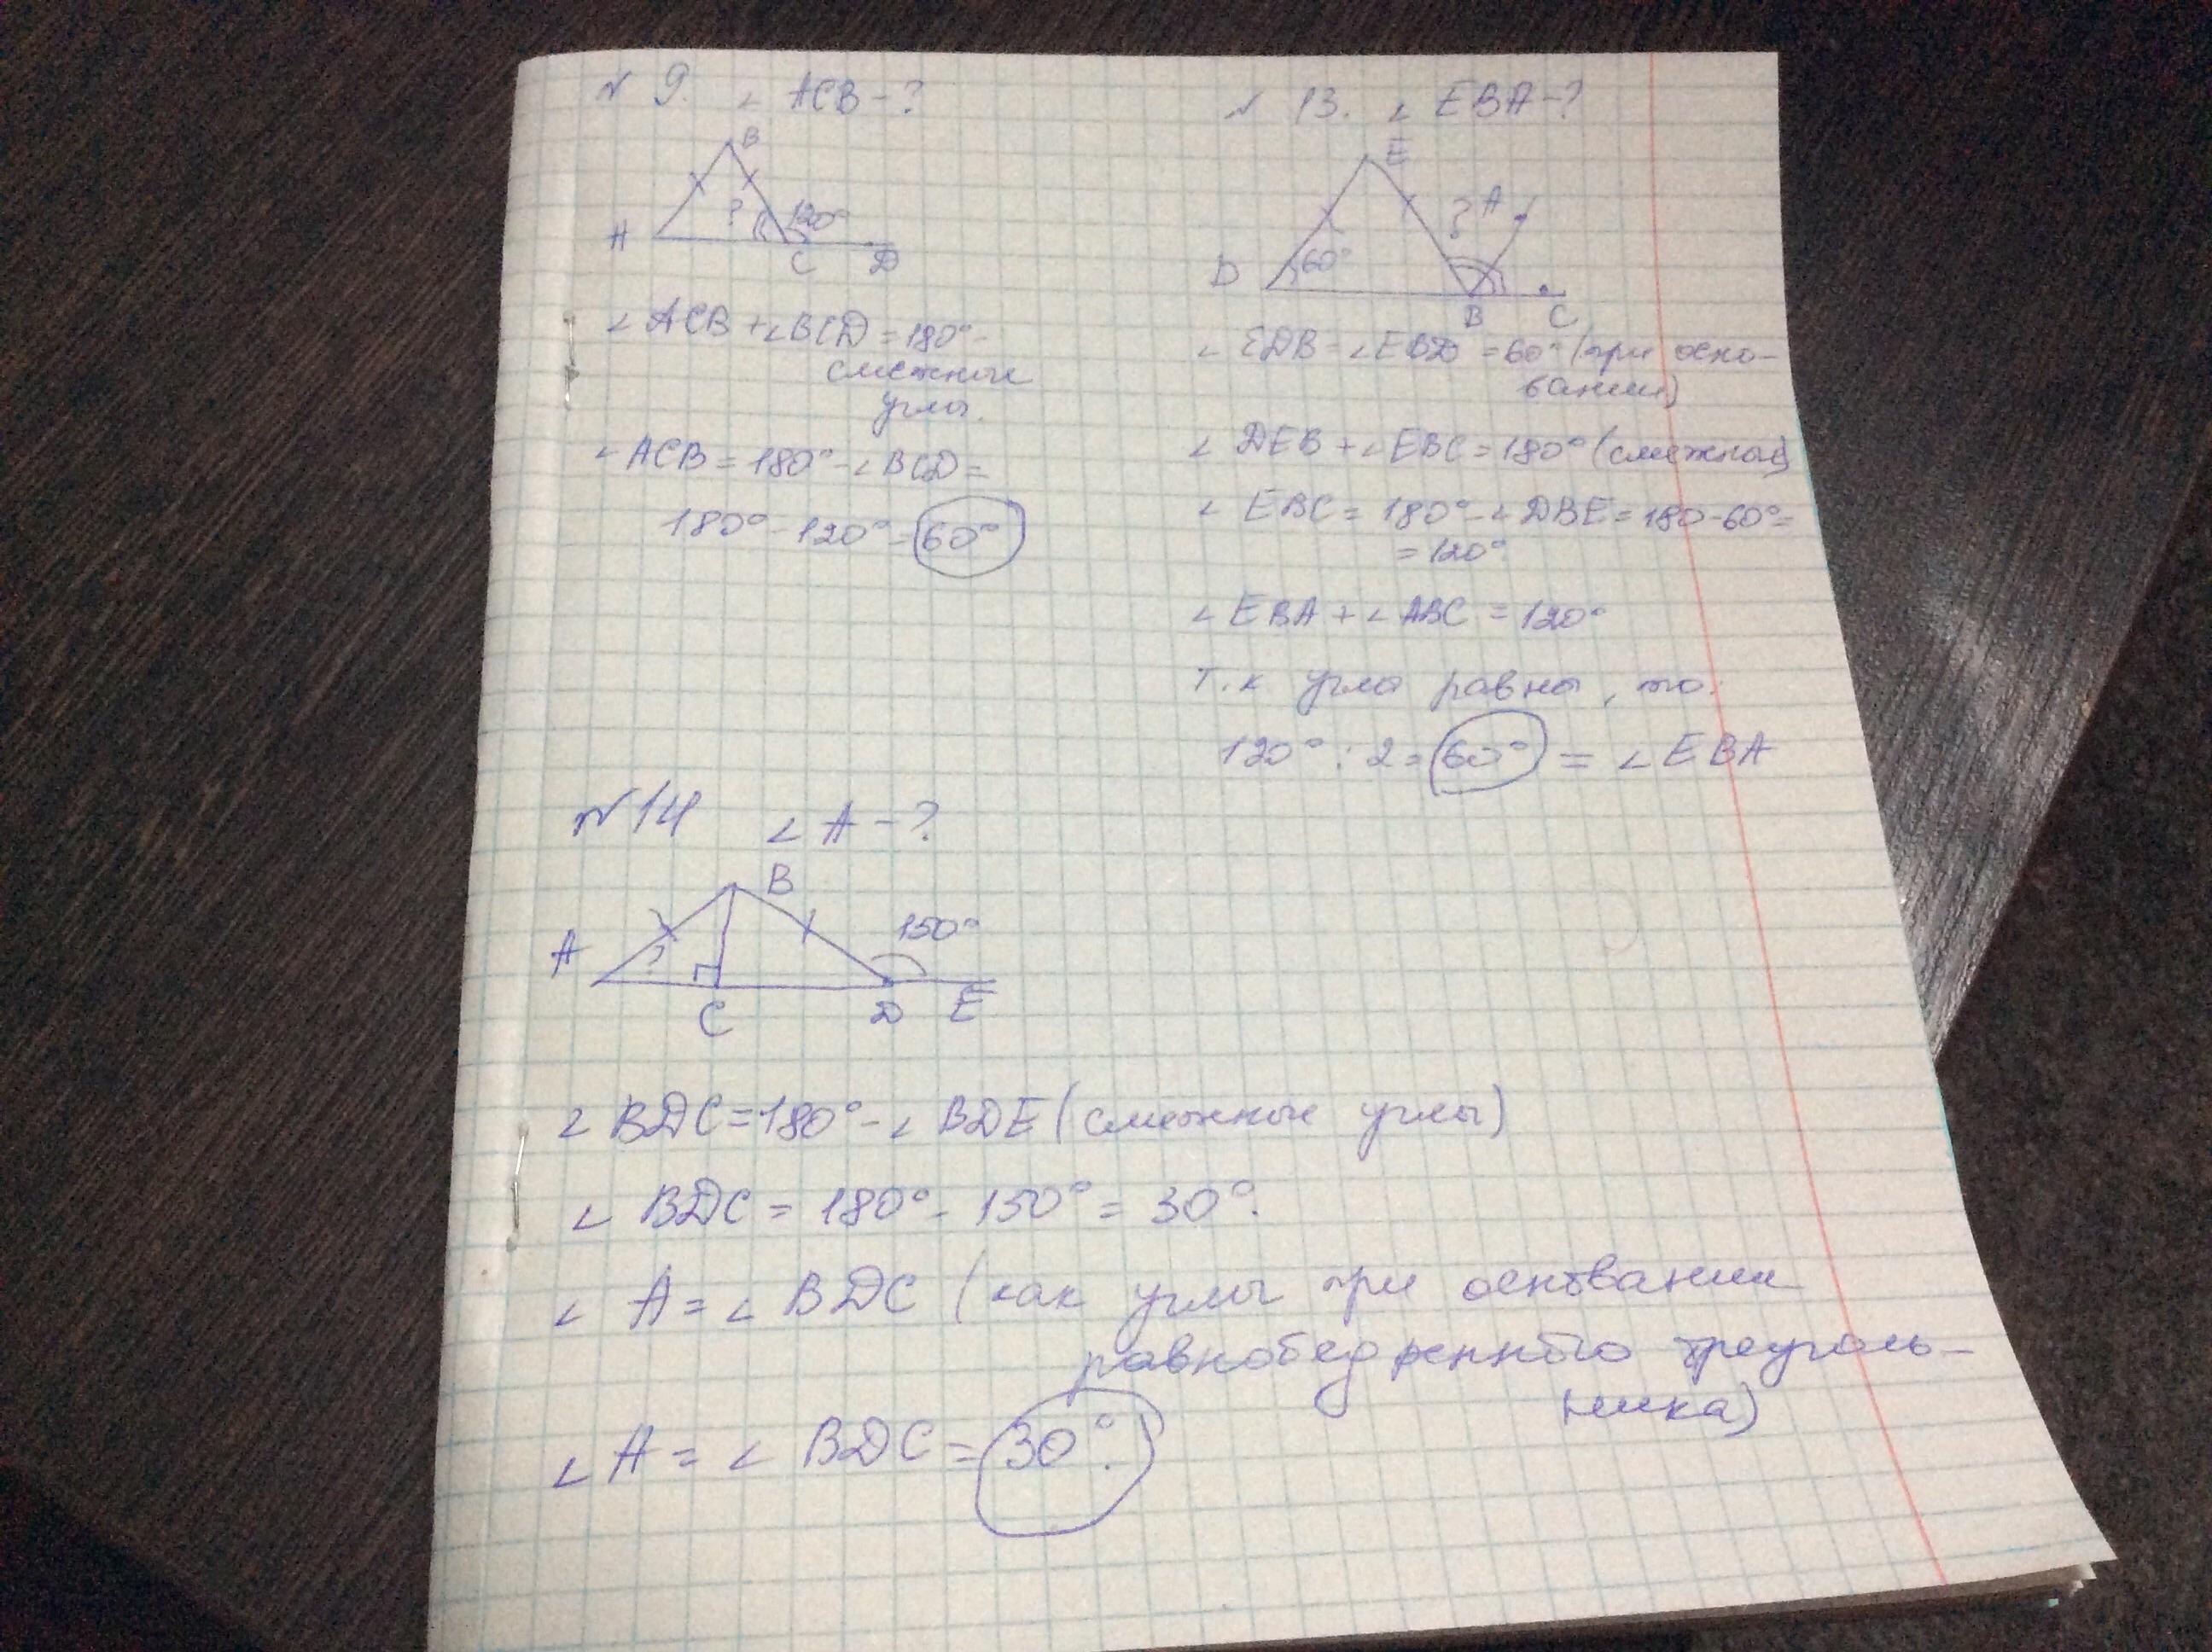 № 9. ∠ ACB - ?
B
? 120°
A C D
∠ ACB + ∠ BCD = 180° -
смежные
углы.
∠ ACB = 180° - ∠ BCD =
180° - 120° = 60°
№ 13. ∠ EBA - ?
E
? A
D 60°
B C
∠ EDB = ∠ EBD = 60° (при осно-
вании)
∠ DEB + ∠ EBC = 180° (смежные)
∠ EBC = 180° - ∠ DBE = 180 - 60° =
= 120°
∠ EBA + ∠ ABC = 120°
т.к углы равны, то:
120° : 2 = 60° = ∠ EBA
№ 14 ∠ A - ?
B
150°
A ?
C D E
∠ BDC = 180° - ∠ BDE (смежные углы)
∠ BDC = 180° - 150° = 30°.
∠ A = ∠ BDC (как углы при основании
равнобедренного треуголь-
ника)
∠ A = ∠ BDC = 30°.